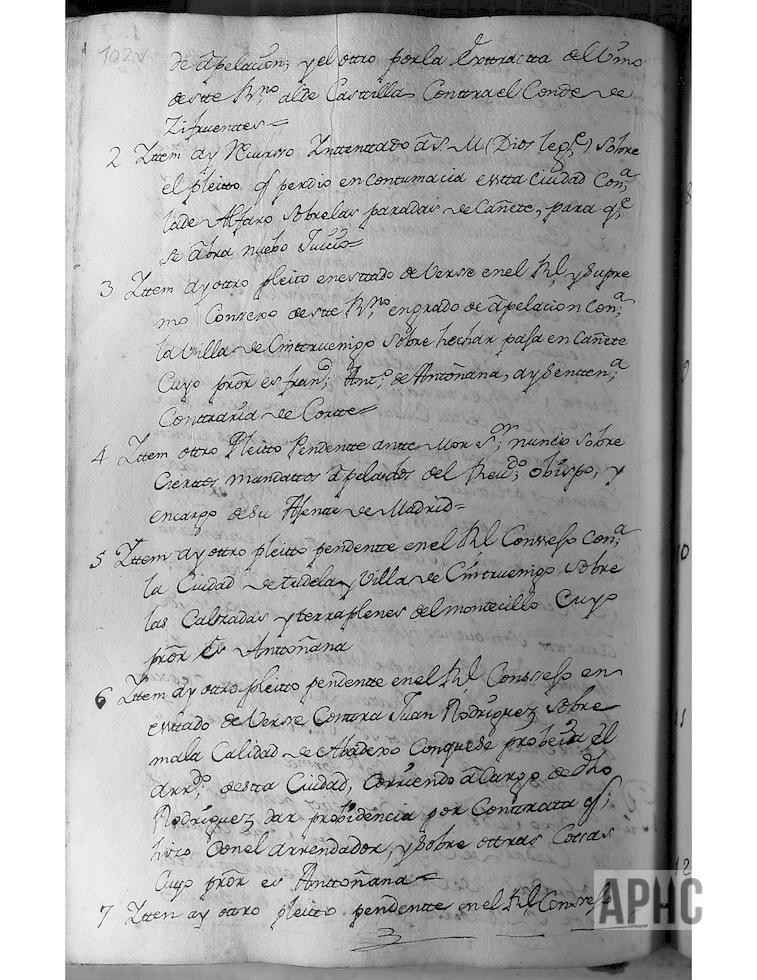 102v
de apelacion; y el otro por la Extracta del Vino
deste Rno. al de Castilla Contra el Conde de
Zifuentes=
2 Ittem ay Recurso Intentado a S. M. (Dios le gde) sobre
el pleito q perdio en contumacia esta Ciudad Conª
la de Alfaro sobre las paradas de Cañete, para qe
se abra nuebo Juicio=
3 Ittem ay otro pleito en estado de Verse en el Rl. y Supre
mo Consexo deste Rno. en grado de apelacion Conª
la Villa de Cintruenigo sobre hechar pasa en Cañete
Cuyo pror es Frand. Antº. de Antoñana, ay Sentenª
Contraria de Corte=
4 Ittem otro Pleito Pendente ante Mor Sor. nuncio sobre
Ciertos mandatos apelados del Reudo. obispo, y
encargo de su Ajente de Madrid=
5 Ittem ay otro pleito pendente en el Rl Consejo Conª
la Ciudad de tudela y Villa de Cintruenigo sobre
las Calzadas y terraplenes del montecillo Cuyo
pror Es Antoñana
6 Ittem ay otro pleito pendente en el Rl. Consejo en
estado de Verse Contra Juan Rodriguez sobre
mala Calidad de Abadexo Conque se probeia el
arrdo. desta Ciudad, Corriendo a Cargo de dho
Rodriguez dar probidencia por Contrata q
hizo Con el arrendador, y sobre otras Cosas
Cuyo pror es Antoñana=
7 Itten ay otro pleito pendente en el Rl Consejo
8
9
10
11
12
APHC